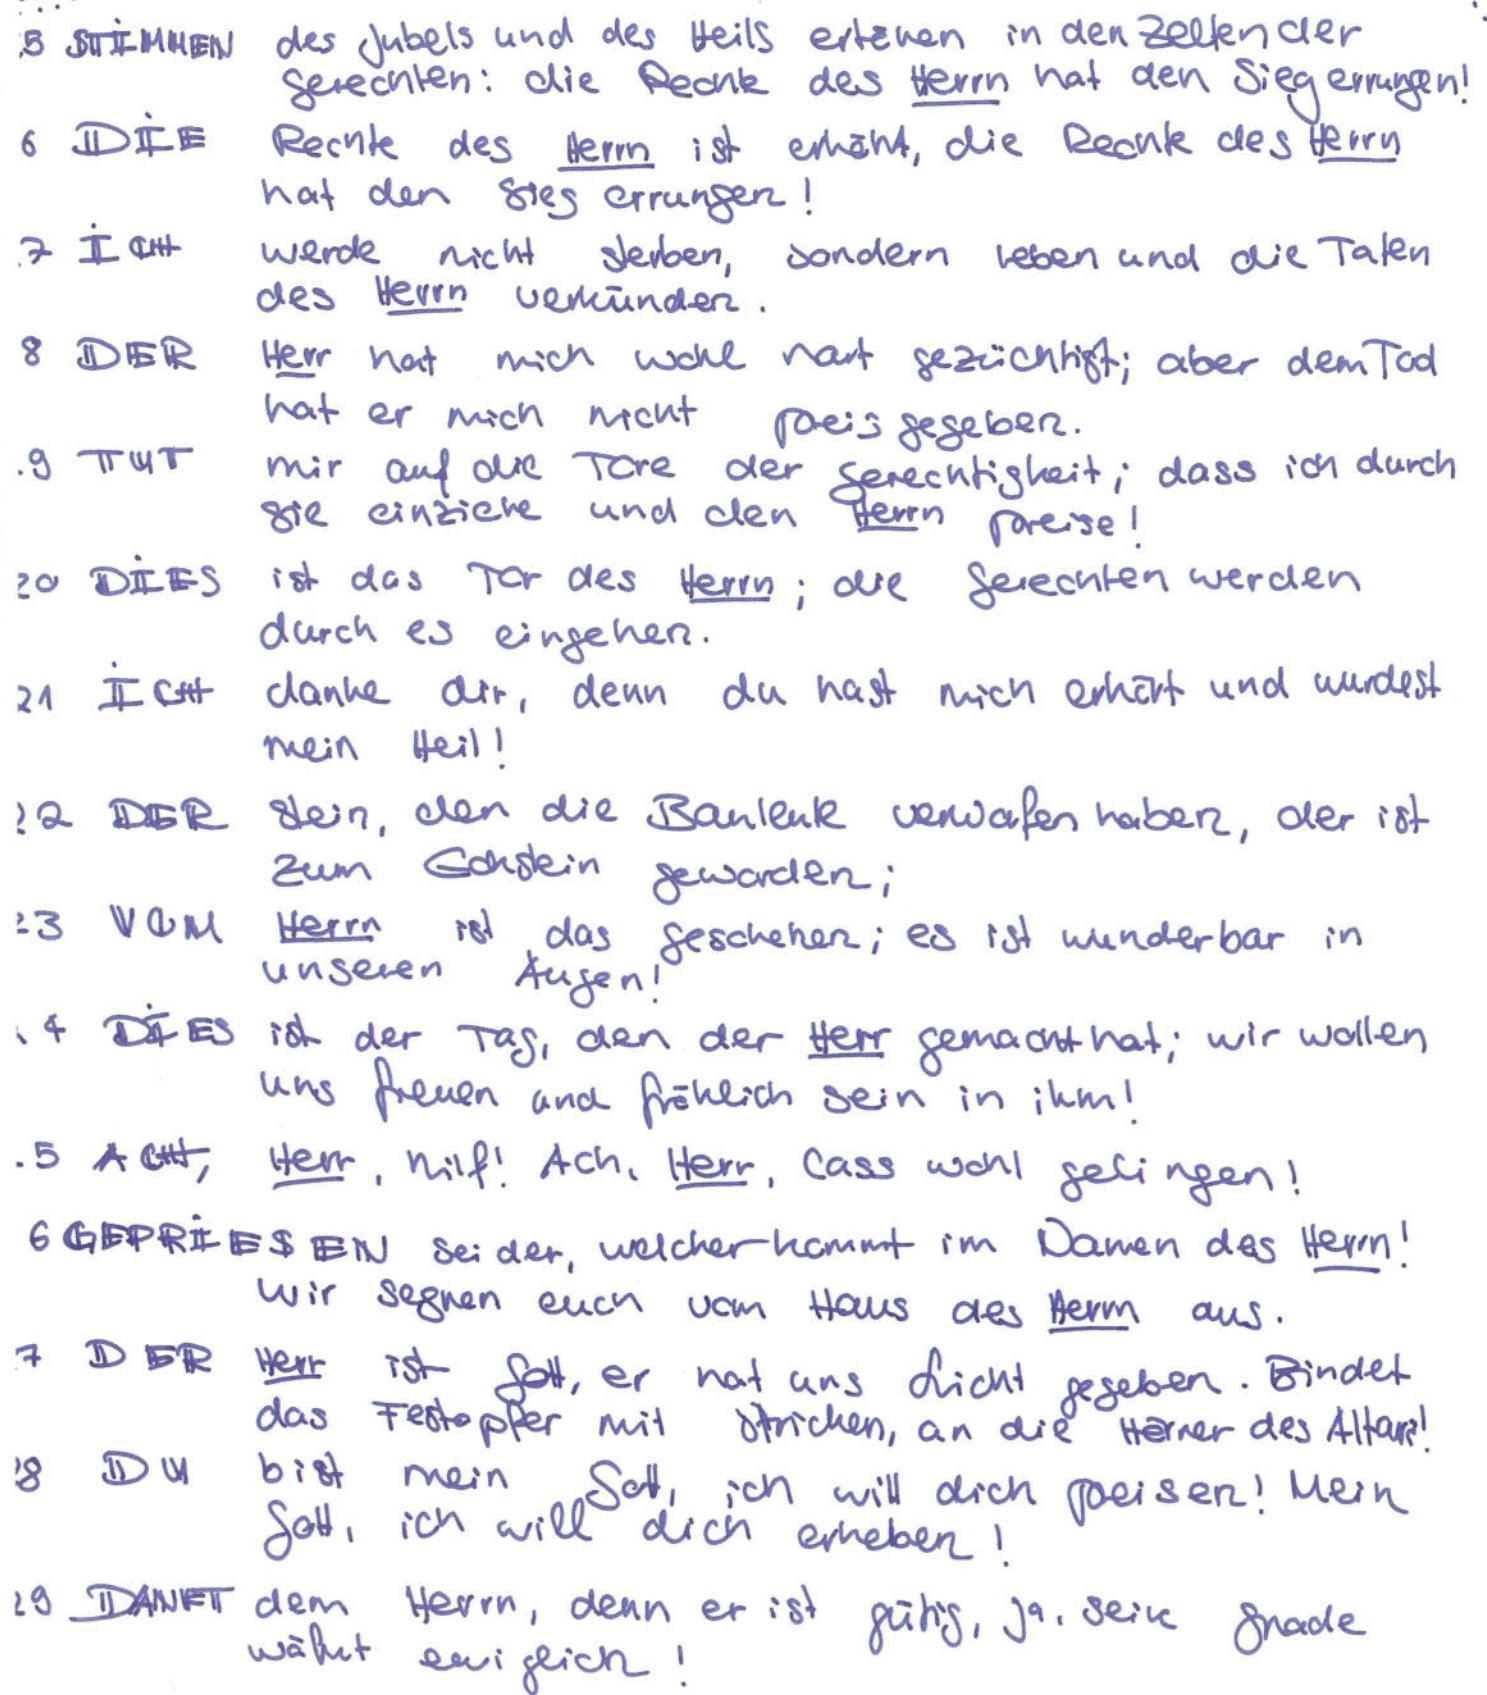 5 STIMMEN des Jubels und des Heils ertönen in den Zelten der
Gerechten: die Rechte des Herrn hat den Sieg errungen!
6 DIE Rechte des Herrn ist erhöht, die Rechte des Herrn
hat den Sieg errungen!
7 ICH werde nicht sterben, sondern leben und die Taten
des Herrn verkünden.
8 DER Herr hat mich wohl hart gezüchtigt; aber dem Tod
hat er mich nicht preisgegeben.
9 TUT mir auf die Tore der Gerechtigkeit; dass ich durch
sie einziehe und den Herrn preise!
20 DIES ist das Tor des Herrn; die Gerechten werden
durch es eingehen.
21 ICH danke dir, denn du hast mich erhört und wurdest
mein Heil!
22 DER Stein, den die Bauleute verworfen haben, der ist
zum Eckstein geworden;
23 VOM Herrn ist das geschehen; es ist wunderbar in
unseren Augen!
4 DIES ist der Tag, den der Herr gemacht hat; wir wollen
uns freuen und fröhlich sein in ihm!
5 ACH, Herr, hilf! Ach, Herr, lass wohl gelingen!
6 GEPRIESEN sei der, welcher kommt im Namen des Herrn!
Wir segnen euch vom Haus des Herrn aus.
7 DER Herr ist Gott, er hat uns Licht gegeben. Bindet
das Festopfer mit Stricken, an die Hörner des Altars!
8 DU bist mein Gott, ich will dich preisen! Mein
Gott, ich will dich erheben!
29 DANKT dem Herrn, denn er ist gütig, ja, seine Gnade
währt ewiglich!